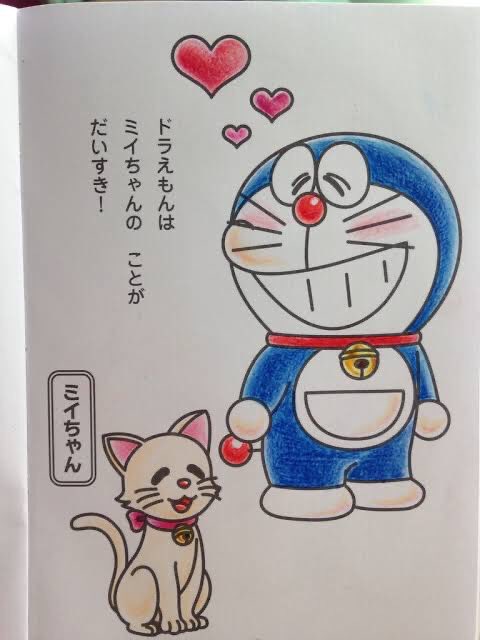 ドラえもんは
ミイちゃんの ことが
だいすき！
ミイちゃん